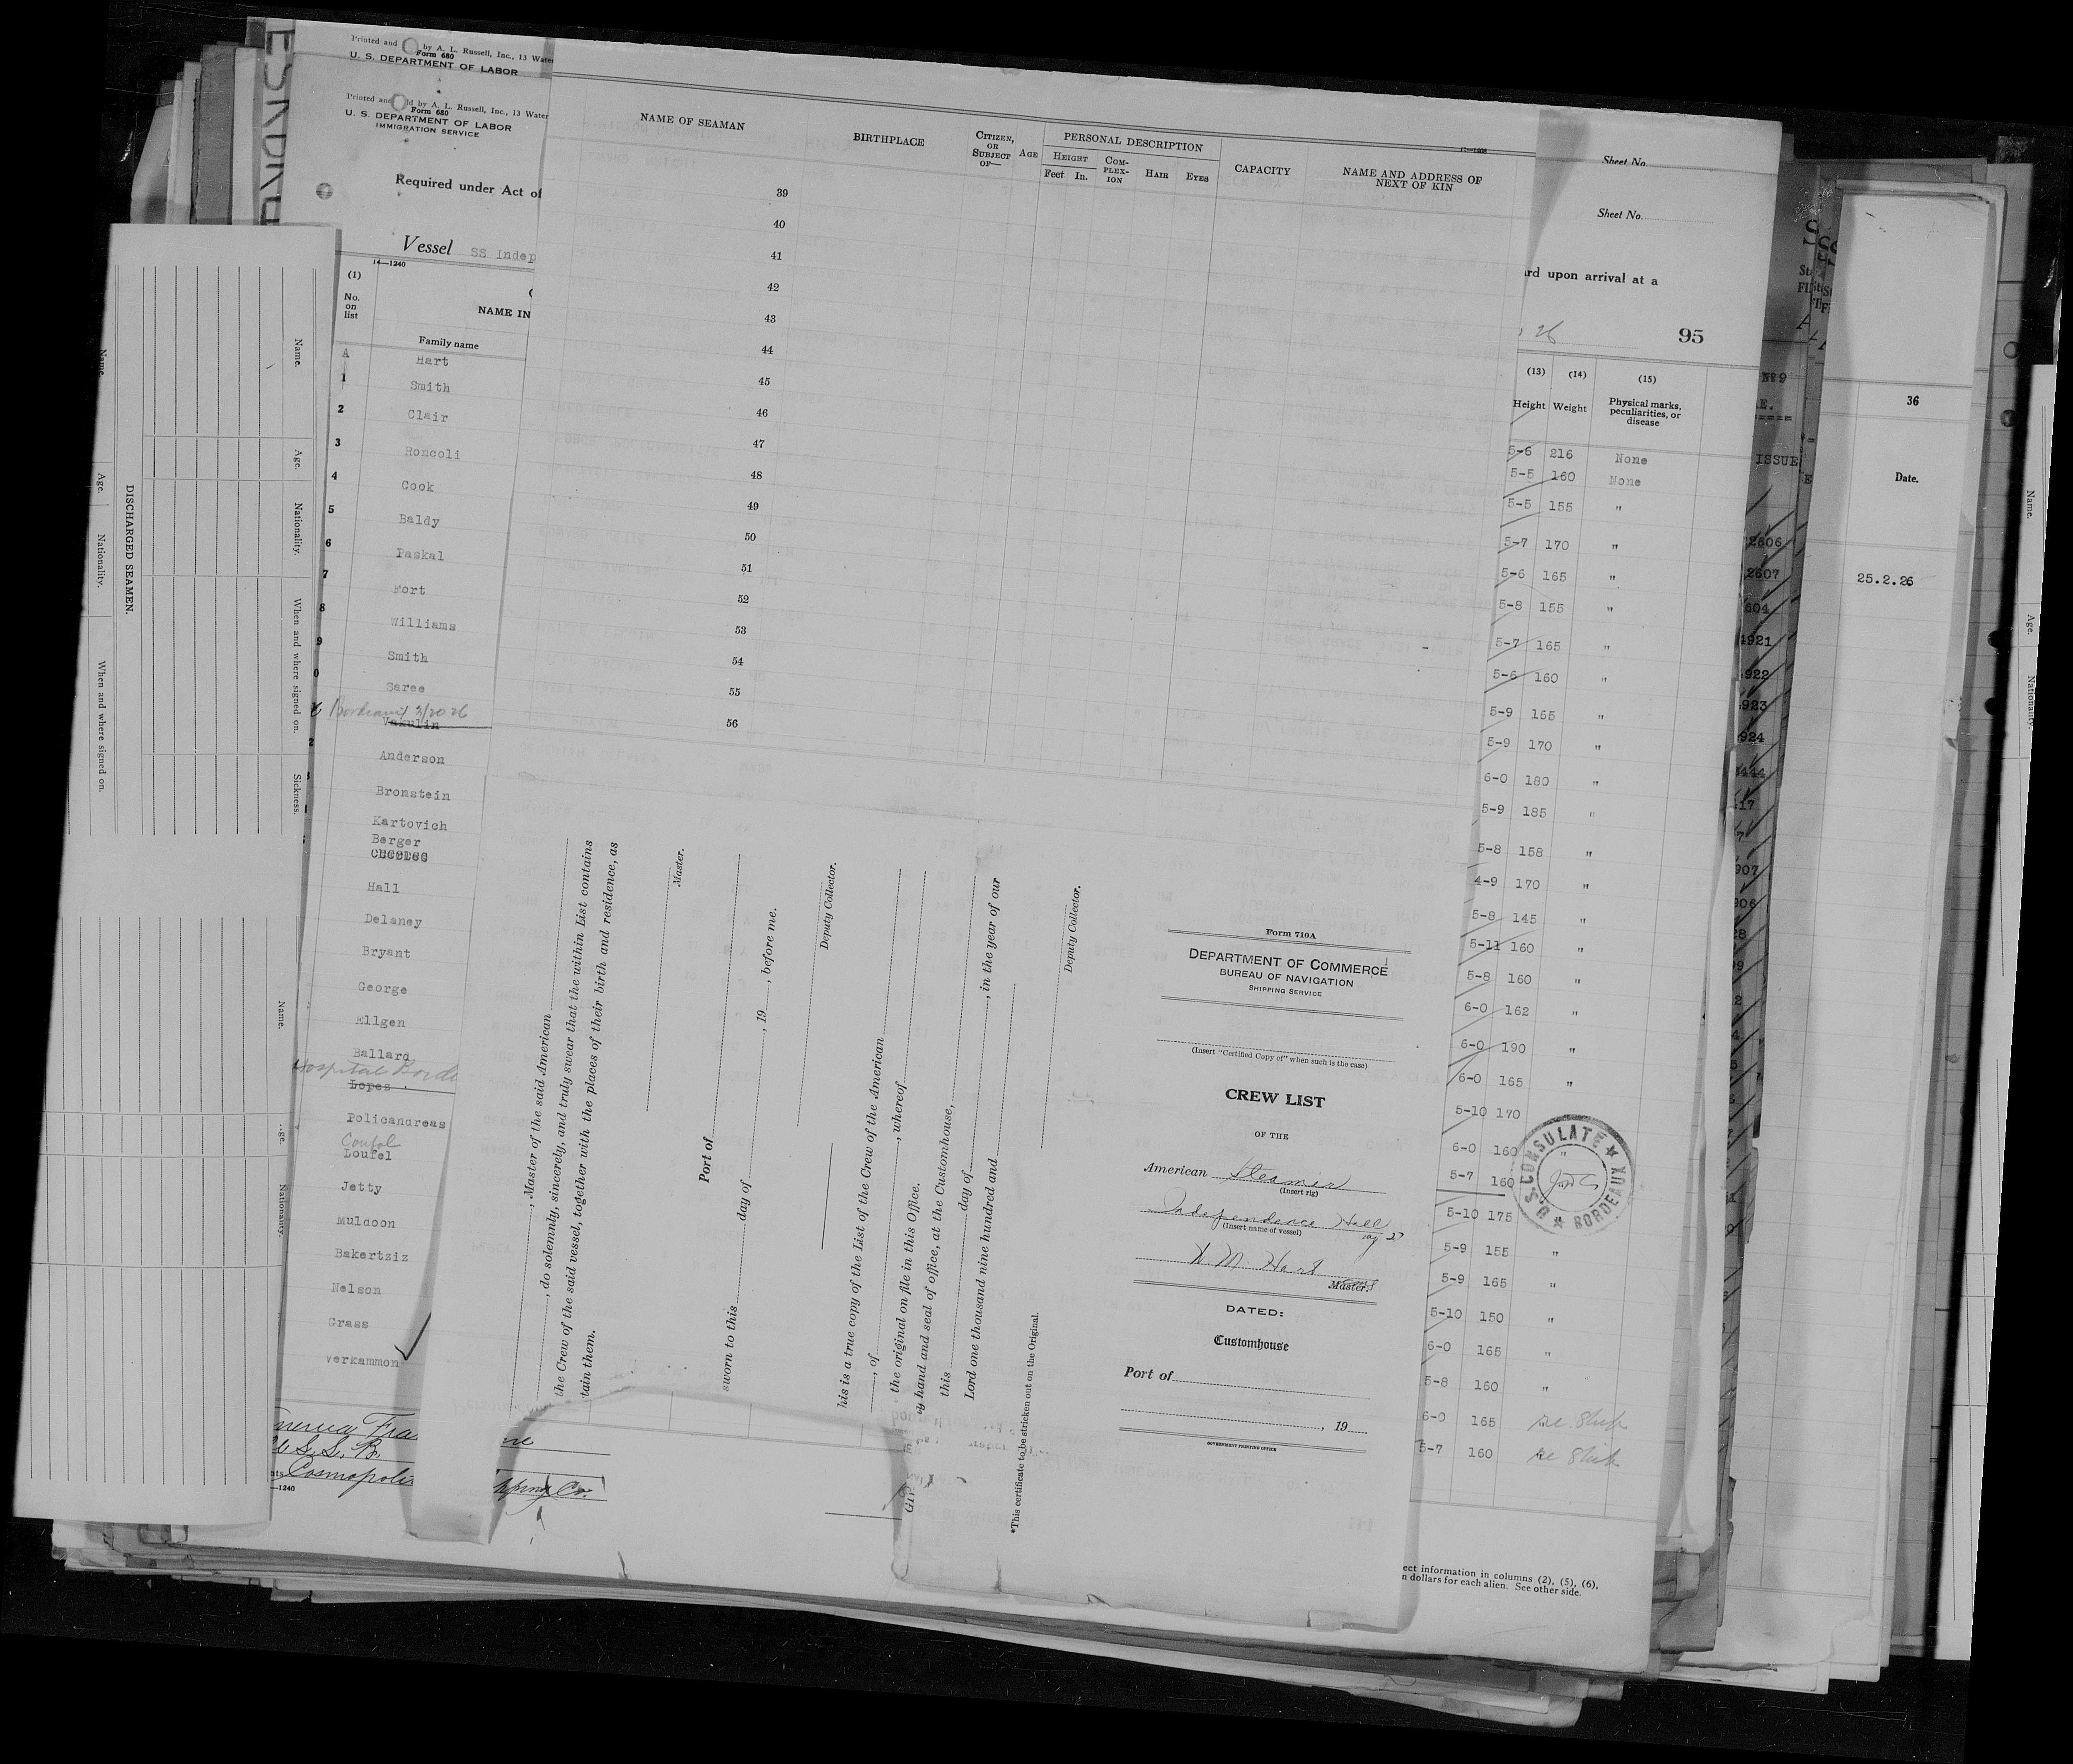 Printed and by A. L. Russell, Inc., 13 Water
Form 680
U. S. DEPARTMENT OF LABOR
Printed and ld by A. L. Russell, Inc., 13 Water
Form 680
U. S. DEPARTMENT OF LABOR
IMMIGRATION SERVICE
Required under Act of
Vessel SS Indep
14—1240
(1)
No. on list
NAME IN
Family name
A Hart
1 Smith
2 Clair
3 Roncoli
4 Cook
5 Baldy
6 Paskal
7 Fort
8 Williams
9 Smith
0 Saree
Bordeaux 3/20 26
Vakulin
2 Anderson
Bronstein
Kartovich
Berger
Hall
Delaney
Bryant
George
Ellgen
Ballard
Hospital Borde
Lopes
Policandreas
Coufal
Loufel
Jetty
Muldoon
Bakertziz
Nelson
Grass
Verkammon
Cosmopoli
pping Co.
—1240
NAME OF SEAMAN
BIRTHPLACE
CITIZEN, OR SUBJECT OF—
AGE
PERSONAL DESCRIPTION
HEIGHT
Feet In.
COM-PLEX-ION
HAIR
EYES
CAPACITY
NAME AND ADDRESS OF NEXT OF KIN
39
40
41
42
43
44
45
46
47
48
49
50
51
52
53
54
55
56
, Master of the said American
, do solemnly, sincerely, and truly swear that the within List contains
the Crew of the said vessel, together with the places of their birth and residence, as
tain them.
Master.
Port of
sworn to this day of , 19 , before me.
Deputy Collector.
his is a true copy of the List of the Crew of the American
, of , whereof
the original on file in this Office.
y hand and seal of office, at the Customhouse,
this day of , in the year of our
Lord one thousand nine hundred and
Deputy Collector.
*This certificate to be stricken out on the Original.
Form 710A
DEPARTMENT OF COMMERCE
BUREAU OF NAVIGATION
SHIPPING SERVICE
(Insert "Certified Copy of" when such is the case)
CREW LIST
OF THE
American Steamer
(Insert rig)
Independence Hall
(Insert name of vessel)
W M Hart
Master.
DATED:
Customhouse
Port of
, 19
GOVERNMENT PRINTING OFFICE
Sheet No.
Sheet No.
rd upon arrival at a
26
95
(13) (14) (15)
Height Weight Physical marks, peculiarities, or disease
5-6 216 None
5-5 160 None
5-5 155 "
5-7 170 "
5-6 165 "
5-8 155 "
5-7 165 "
5-6 160 "
5-9 165 "
5-9 170 "
6-0 180 "
5-9 185 "
5-8 158 "
4-9 170 "
5-8 145 "
5-11 160 "
5-8 160 "
6-0 162 "
6-0 190 "
6-0 165 "
5-10 170
6-0 160 "
5-7 160
5-10 175
5-9 155 "
5-9 165 "
5-10 150 "
6-0 165 "
5-8 160 "
6-0 165
5-7 160
U.S. CONSULATE
BORDEAUX
ect information in columns (2), (5), (6),
n dollars for each alien. See other side.
Nº 9
E.
ISSUE
2606
2607
604
4921
922
923
924
907
906
36
Date.
25.2.26
DISCHARGED SEAMEN.
Name.
Age.
Nationality.
When and where signed on.
Name.
Age.
Nationality.
When and where signed on.
Sickness.
Name.
Nationality.
Name.
Age.
Nationality.